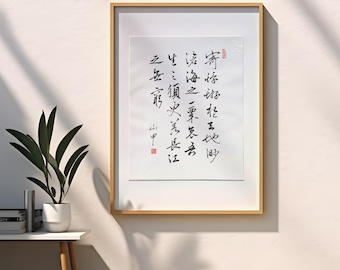 寄蜉蝣於天地渺
滄海之一粟哀吾
生之須臾羨長江
之無窮
山甲